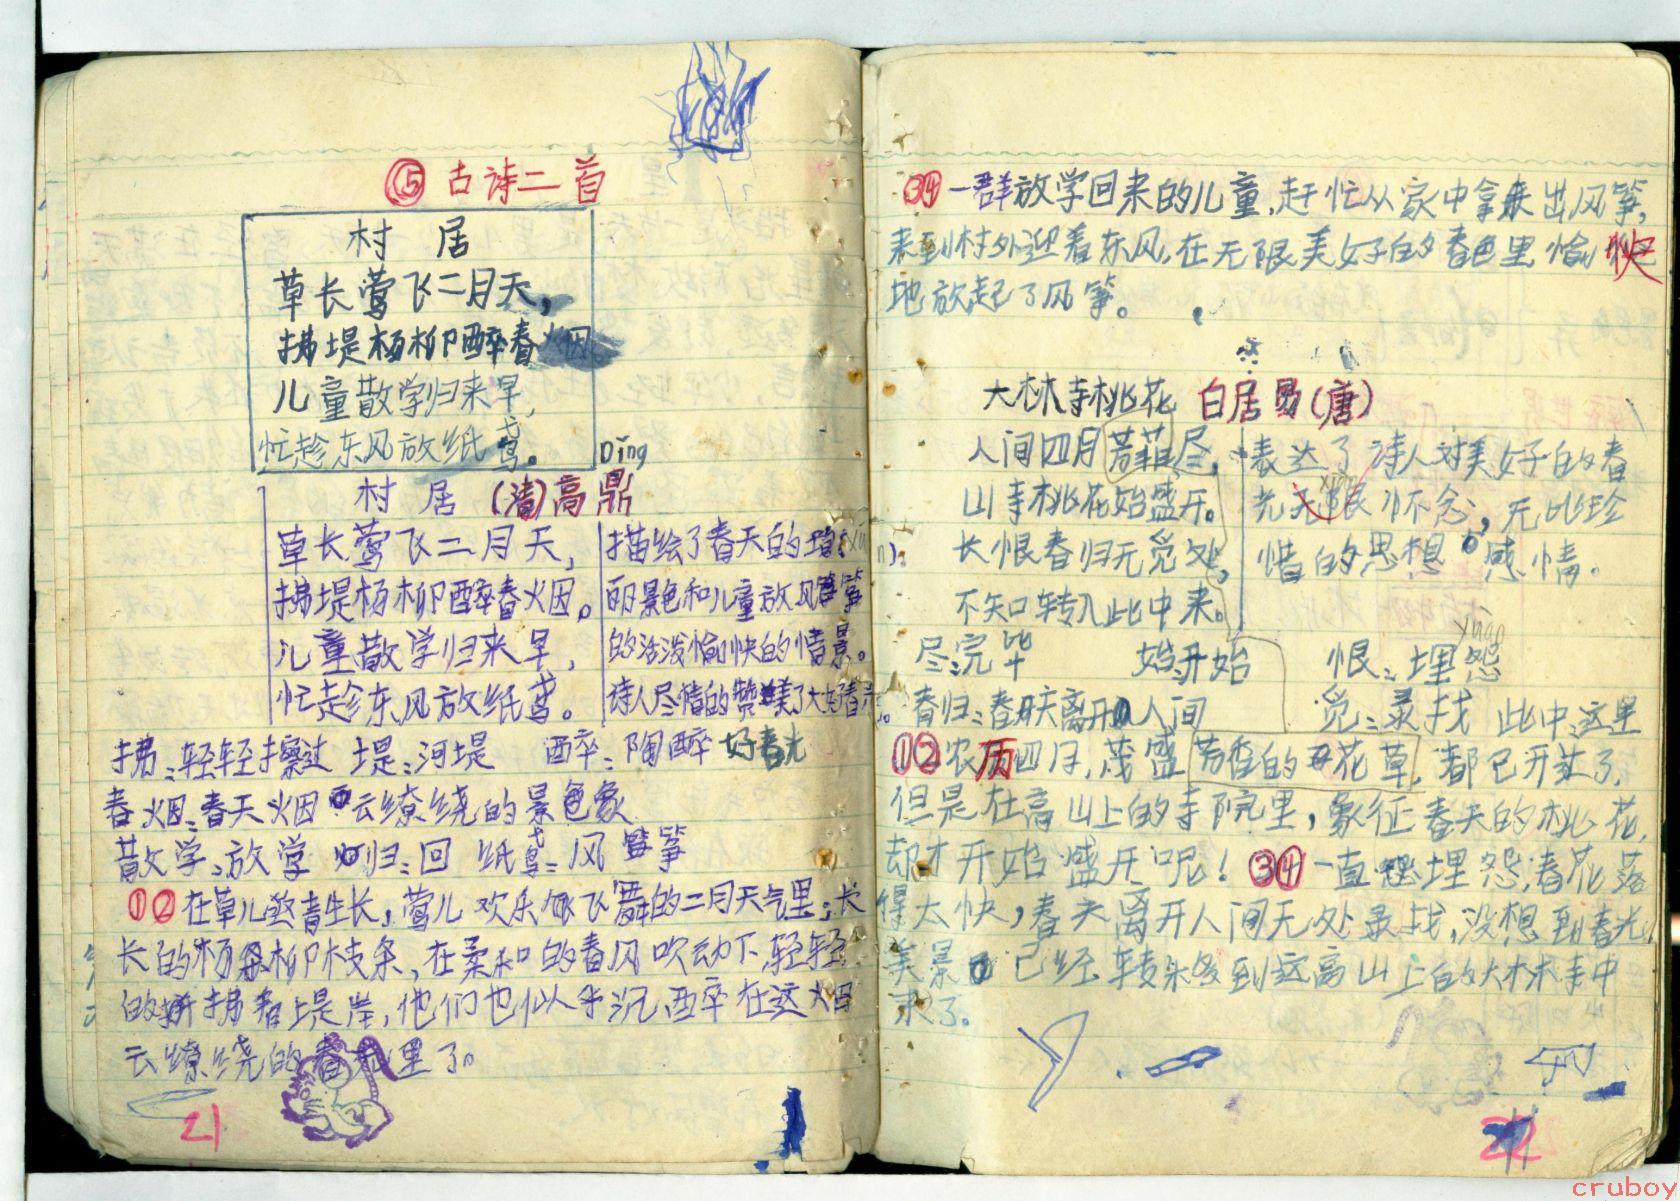 ⑤ 古诗二首
村 居
草长莺飞二月天，
拂堤杨柳醉春烟。
儿童散学归来早，
忙趁东风放纸鸢。
Dǐng
村 居 (清)高鼎
草长莺飞二月天，
拂堤杨柳醉春烟。
儿童散学归来早，
忙趁东风放纸鸢。
描绘了春天的
丽景色和儿童放风筝
的活泼愉快的情景。
诗人尽情的赞美了大好春光。
拂：轻轻擦过 堤：河堤 醉：陶醉 好春光
春烟：春天烟云缭绕的景象
散学：放学 归：回 纸鸢：风筝
①②在草儿 生长，莺儿欢乐 飞舞的二月天气里；长
长的杨柳枝条，在柔和的春风吹动下，轻轻
的拂着堤岸，他们也似乎沉醉在这烟
云缭绕的春 里了。
21
③④一群放学回来的儿童，赶忙从家中拿出风筝，
来到村外迎着东风，在无限美好的春色里愉快
地放起了风筝。
大林寺桃花 白居易(唐)
人间四月芳菲尽，
山寺桃花始盛开。
长恨春归无觅处，
不知转入此中来。
表达了诗人对美好的春
光无限怀念，无比珍
惜的思想感情。
尽：完毕 始：开始 恨：埋怨
春归：春天离开人间 觅：寻找 此中：这里
①②农历四月，茂盛芳香的花草，都已开过了，
但是在高山上的寺院里，象征春天的桃花，
却才开始盛开呢！③④一直埋怨，春花落
得太快，春天离开人间无处寻找，没想到春光
美景已经转移到这高山上的大林寺中
来了。
22
cruboy